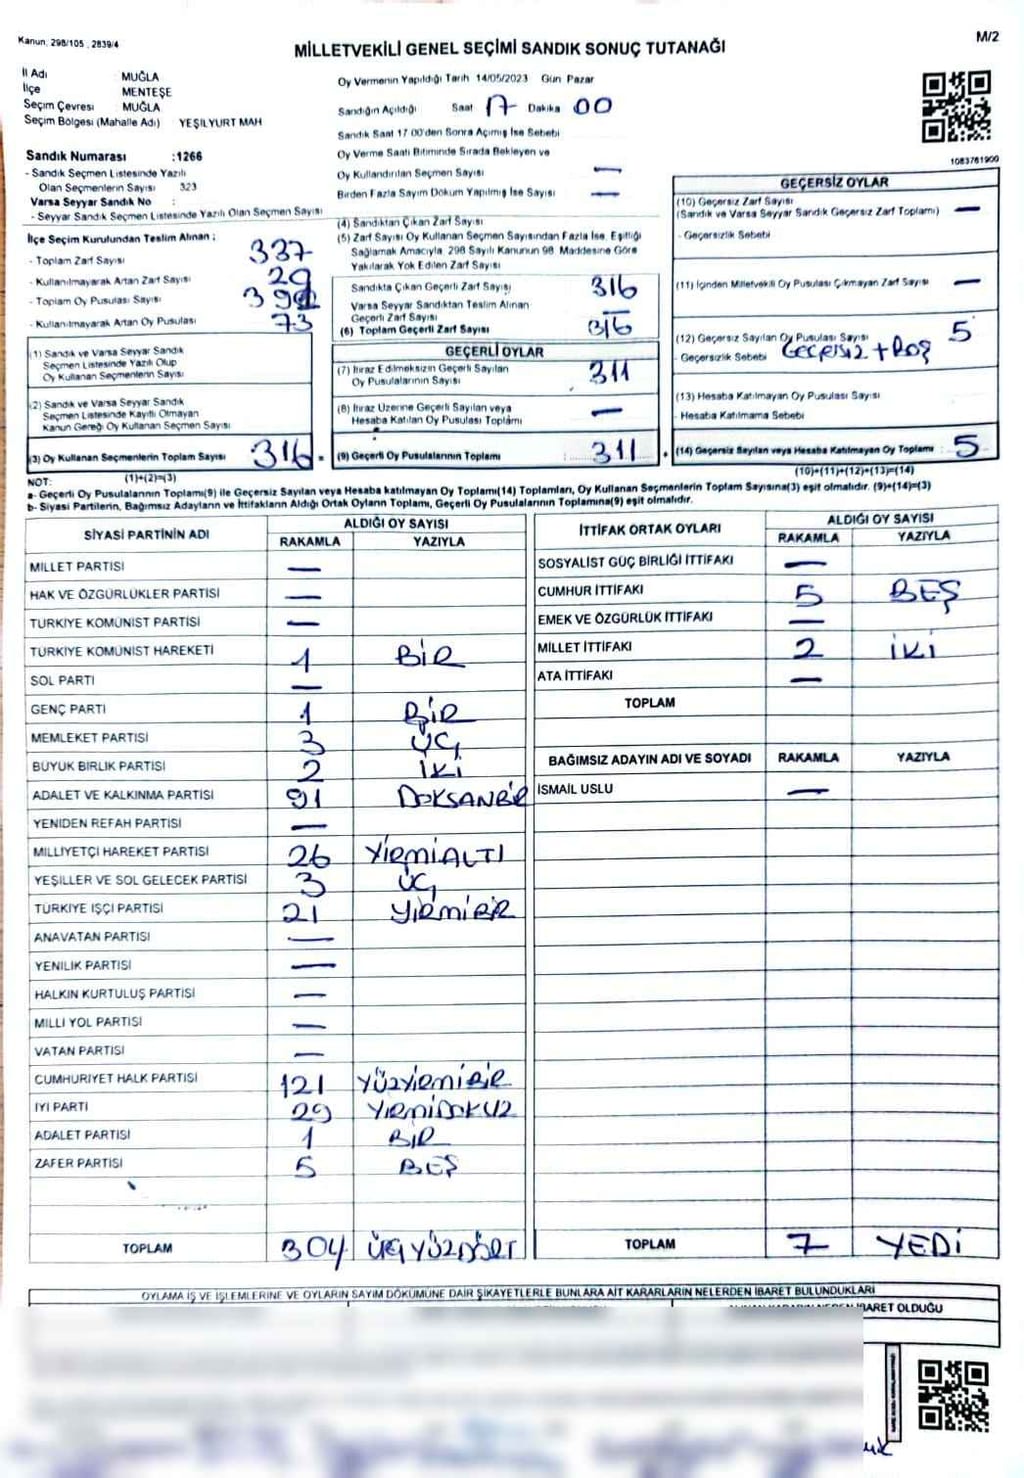 Kanun, 298/105 , 2839/4
M/2
MİLLETVEKİLİ GENEL SEÇİMİ SANDIK SONUÇ TUTANAĞI
İl Adı MUĞLA
İlçe MENTEŞE
Seçim Çevresi : MUĞLA
Seçim Bölgesi (Mahalle Adı) YEŞİLYURT MAH
Sandık Numarası :1266
- Sandık Seçmen Listesinde Yazılı
Olan Seçmenlerin Sayısı 323
Varsa Seyyar Sandık No :
- Seyyar Sandık Seçmen Listesinde Yazılı Olan Seçmen Sayısı
İlçe Seçim Kurulundan Teslim Alınan ;
- Toplam Zarf Sayısı 337
- Kullanılmayarak Artan Zarf Sayısı
- Toplam Oy Pusulası Sayısı
- Kullanılmayarak Artan Oy Pusulası 73
(1) Sandık ve Varsa Seyyar Sandık
Seçmen Listesinde Yazılı Olup
Oy Kullanan Seçmenlerin Sayısı
(2) Sandık ve Varsa Seyyar Sandık
Seçmen Listesinde Kayıtlı Olmayan
Kanun Gereği Oy Kullanan Seçmen Sayısı
(3) Oy Kullanan Seçmenlerin Toplam Sayısı 316
(1)+(2)=(3)
Oy Vermenin Yapıldığı Tarih 14/05/2023 Gün Pazar
Sandığın Açıldığı Saat 17 Dakika 00
Sandık Saat 17 00'den Sonra Açımış İse Sebebi
Oy Verme Saati Bitiminde Sırada Bekleyen ve
Oy Kullandırılan Seçmen Sayısı —
Birden Fazla Sayım Döküm Yapılmış İse Sayısı —
(4) Sandıktan Çıkan Zarf Sayısı
(5) Zarf Sayısı Oy Kullanan Seçmen Sayısından Fazla İse, Eşitliği
Sağlamak Amacıyla, 298 Sayılı Kanunun 98. Maddesine Göre
Yakılarak Yok Edilen Zarf Sayısı
Sandıkta Çıkan Geçerli Zarf Sayısı 316
Varsa Seyyar Sandıktan Teslim Alınan
Geçerli Zarf Sayısı —
(6) Toplam Geçerli Zarf Sayısı 316
GEÇERLİ OYLAR
(7) İtiraz Edilmeksizin Geçerli Sayılan
Oy Pusulalarının Sayısı 311
(8) İtiraz Üzerine Geçerli Sayılan veya
Hesaba Katılan Oy Pusulası Toplamı —
(9) Geçerli Oy Pusulalarının Toplamı : 311
1083761900
GEÇERSİZ OYLAR
(10) Geçersiz Zarf Sayısı
(Sandık ve Varsa Seyyar Sandık Geçersiz Zarf Toplamı) —
- Geçersizlik Sebebi
(11) İçinden Milletvekili Oy Pusulası Çıkmayan Zarf Sayısı —
(12) Geçersiz Sayılan Oy Pusulası Sayısı 5
- Geçersizlik Sebebi GEÇERSİZ + BOŞ
(13) Hesaba Katılmayan Oy Pusulası Sayısı
- Hesaba Katılmama Sebebi
(14) Geçersiz Sayılan veya Hesaba Katılmayan Oy Toplamı : 5
(10)+(11)+(12)+(13)=(14)
NOT:
a- Geçerli Oy Pusulalarının Toplamı(9) ile Geçersiz Sayılan veya Hesaba katılmayan Oy Toplamı(14) Toplamları, Oy Kullanan Seçmenlerin Toplam Sayısına(3) eşit olmalıdır. (9)+(14)=(3)
b- Siyasi Partilerin, Bağımsız Adayların ve İttifakların Aldığı Ortak Oyların Toplamı, Geçerli Oy Pusulalarının Toplamına(9) eşit olmalıdır.
SİYASİ PARTİNİN ADI ALDIĞI OY SAYISI
RAKAMLA YAZIYLA
MİLLET PARTİSİ —
HAK VE ÖZGÜRLÜKLER PARTİSİ —
TÜRKİYE KOMÜNİST PARTİSİ —
TÜRKİYE KOMÜNİST HAREKETİ 1 BİR
SOL PARTİ —
GENÇ PARTİ 1 BİR
MEMLEKET PARTİSİ 3 ÜÇ
BÜYÜK BİRLİK PARTİSİ 2 İKİ
ADALET VE KALKINMA PARTİSİ 91 DOKSANBİR
YENİDEN REFAH PARTİSİ —
MİLLİYETÇİ HAREKET PARTİSİ 26 YİRMİALTI
YEŞİLLER VE SOL GELECEK PARTİSİ 3 ÜÇ
TÜRKİYE İŞÇİ PARTİSİ 21 YİRMİBİR
ANAVATAN PARTİSİ —
YENİLİK PARTİSİ —
HALKIN KURTULUŞ PARTİSİ —
MİLLİ YOL PARTİSİ —
VATAN PARTİSİ —
CUMHURİYET HALK PARTİSİ 121 YÜZYİRMİBİR
İYİ PARTİ 29 YİRMİDOKUZ
ADALET PARTİSİ 1 BİR
ZAFER PARTİSİ 5 BEŞ
TOPLAM 304 ÜÇYÜZDÖRT
İTTİFAK ORTAK OYLARI ALDIĞI OY SAYISI
RAKAMLA YAZIYLA
SOSYALİST GÜÇ BİRLİĞİ İTTİFAKI —
CUMHUR İTTİFAKI 5 BEŞ
EMEK VE ÖZGÜRLÜK İTTİFAKI —
MİLLET İTTİFAKI 2 İKİ
ATA İTTİFAKI —
TOPLAM
BAĞIMSIZ ADAYIN ADI VE SOYADI RAKAMLA YAZIYLA
İSMAİL USLU —
TOPLAM 7 YEDİ
OYLAMA İŞ VE İŞLEMLERİNE VE OYLARIN SAYIM DÖKÜMÜNE DAİR ŞİKAYETLERLE BUNLARA AİT KARARLARIN NELERDEN İBARET BULUNDUKLARI
İBARET OLDUĞU